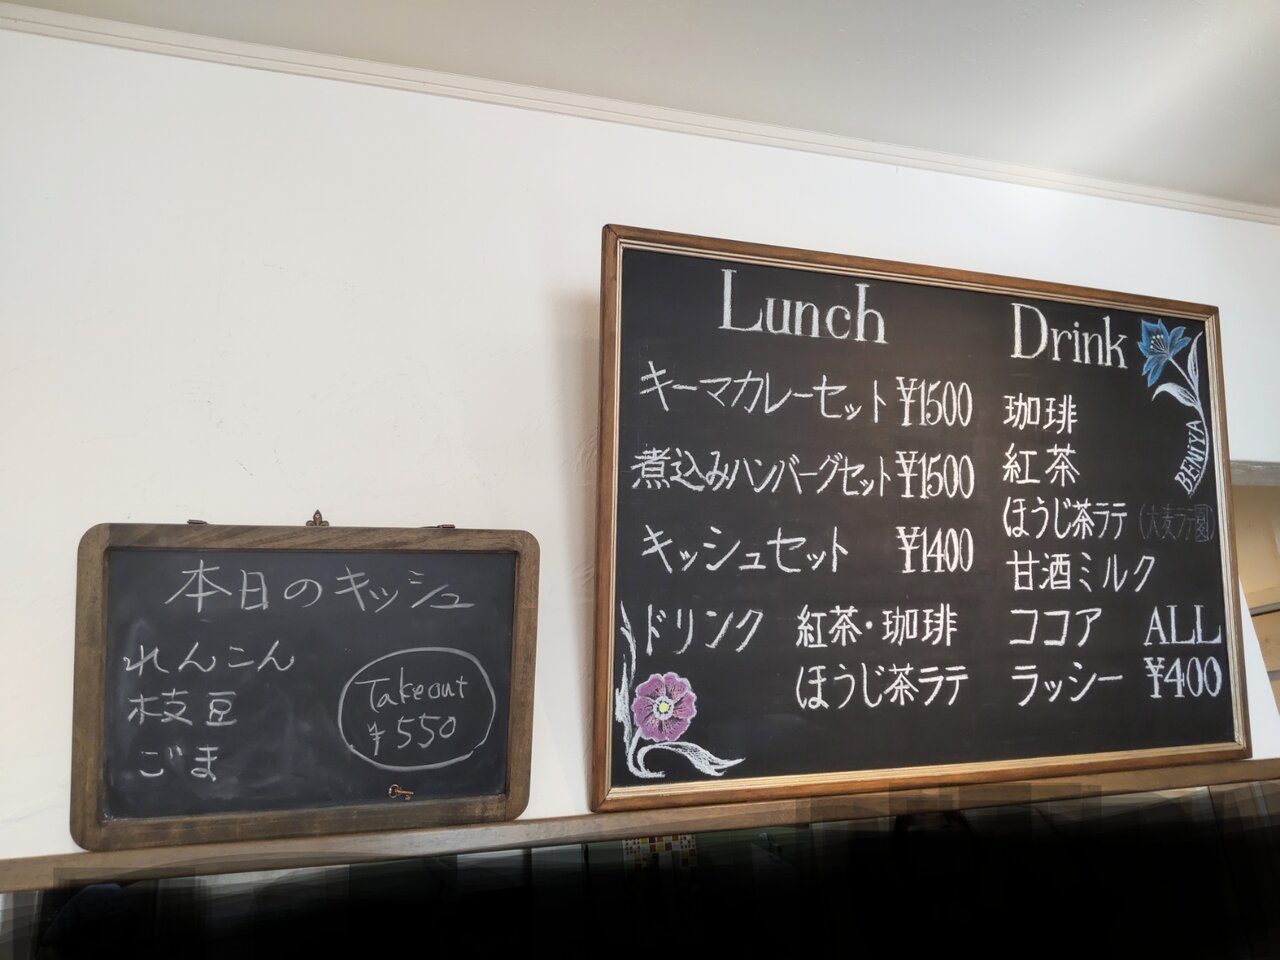 本日のキッシュ
れんこん
枝豆
ごま
Takeout
¥550
Lunch
キーマカレーセット ¥1500
煮込みハンバーグセット ¥1500
キッシュセット ¥1400
ドリンク 紅茶・珈琲
ほうじ茶ラテ
Drink
珈琲
紅茶
ほうじ茶ラテ (大麦ラテ園)
甘酒ミルク
ココア
ラッシー
ALL
¥400
BENIYA